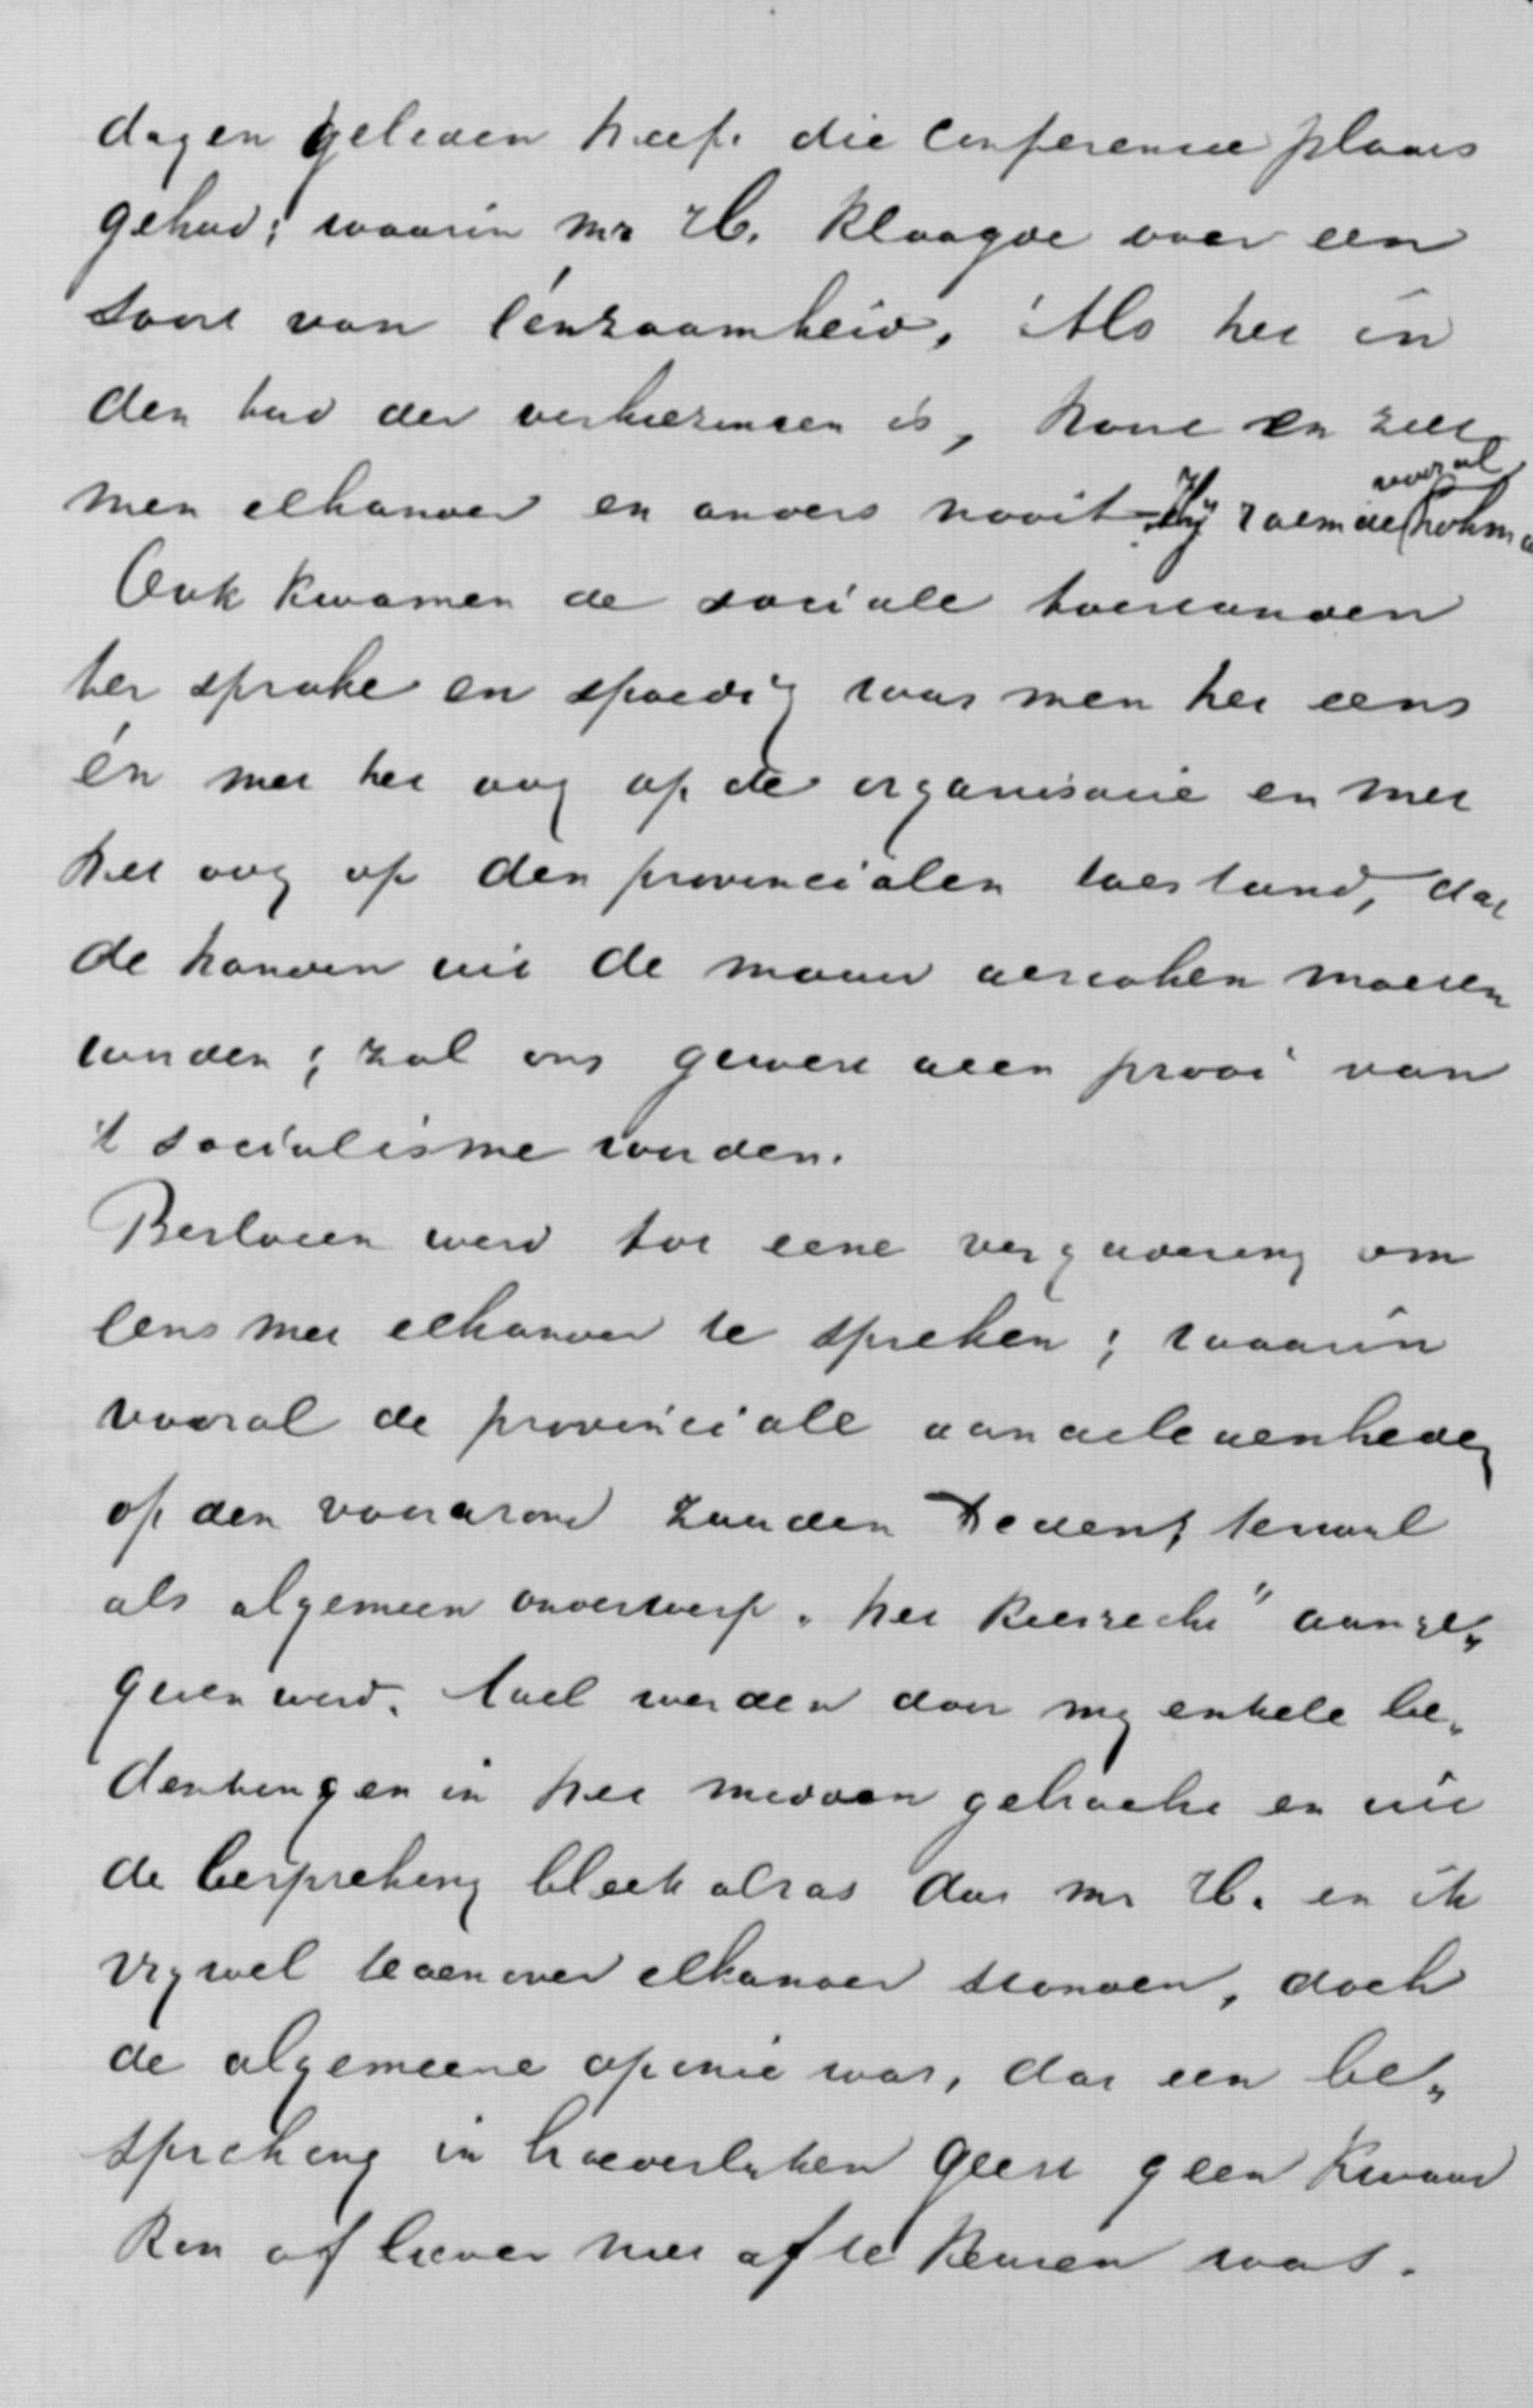 dagen geleden heeft die conferentie plaats
gehad; waarin Mr H. klaagde over een
soort van eenzaamheid. Als het in
den tijd der verkiezingen is, hoort en ziet
men elkander en anders nooit. Hij roemde vooral Lohman
Ook kwamen de sociale toestanden
ter sprake en spoedig was men het eens
én met het oog op de organisatie en met
het oog op den provincialen toestand, dat
de handen uit de mouw gestoken moesten
worden; zal ons gewest geen prooi van
't socialisme worden.
Besloten werd tot eene vergadering om
eens met elkander te spreken; waarin
vooral de provinciale aangelegenheden
op den voorgrond zouden treden, terwijl
als algemeen onderwerp „het Kiesrecht" aange„
geven werd. Wel werden door mij enkele be„
denkingen in het midden gebracht en uit
de bespreking bleek alras dat Mr H. en ik
vrijwel tegenover elkander stonden, doch
de algemeene opinie was, dat een be„
spreking in broederlijken geest geen kwaad
kon of liever niet af te keuren was.